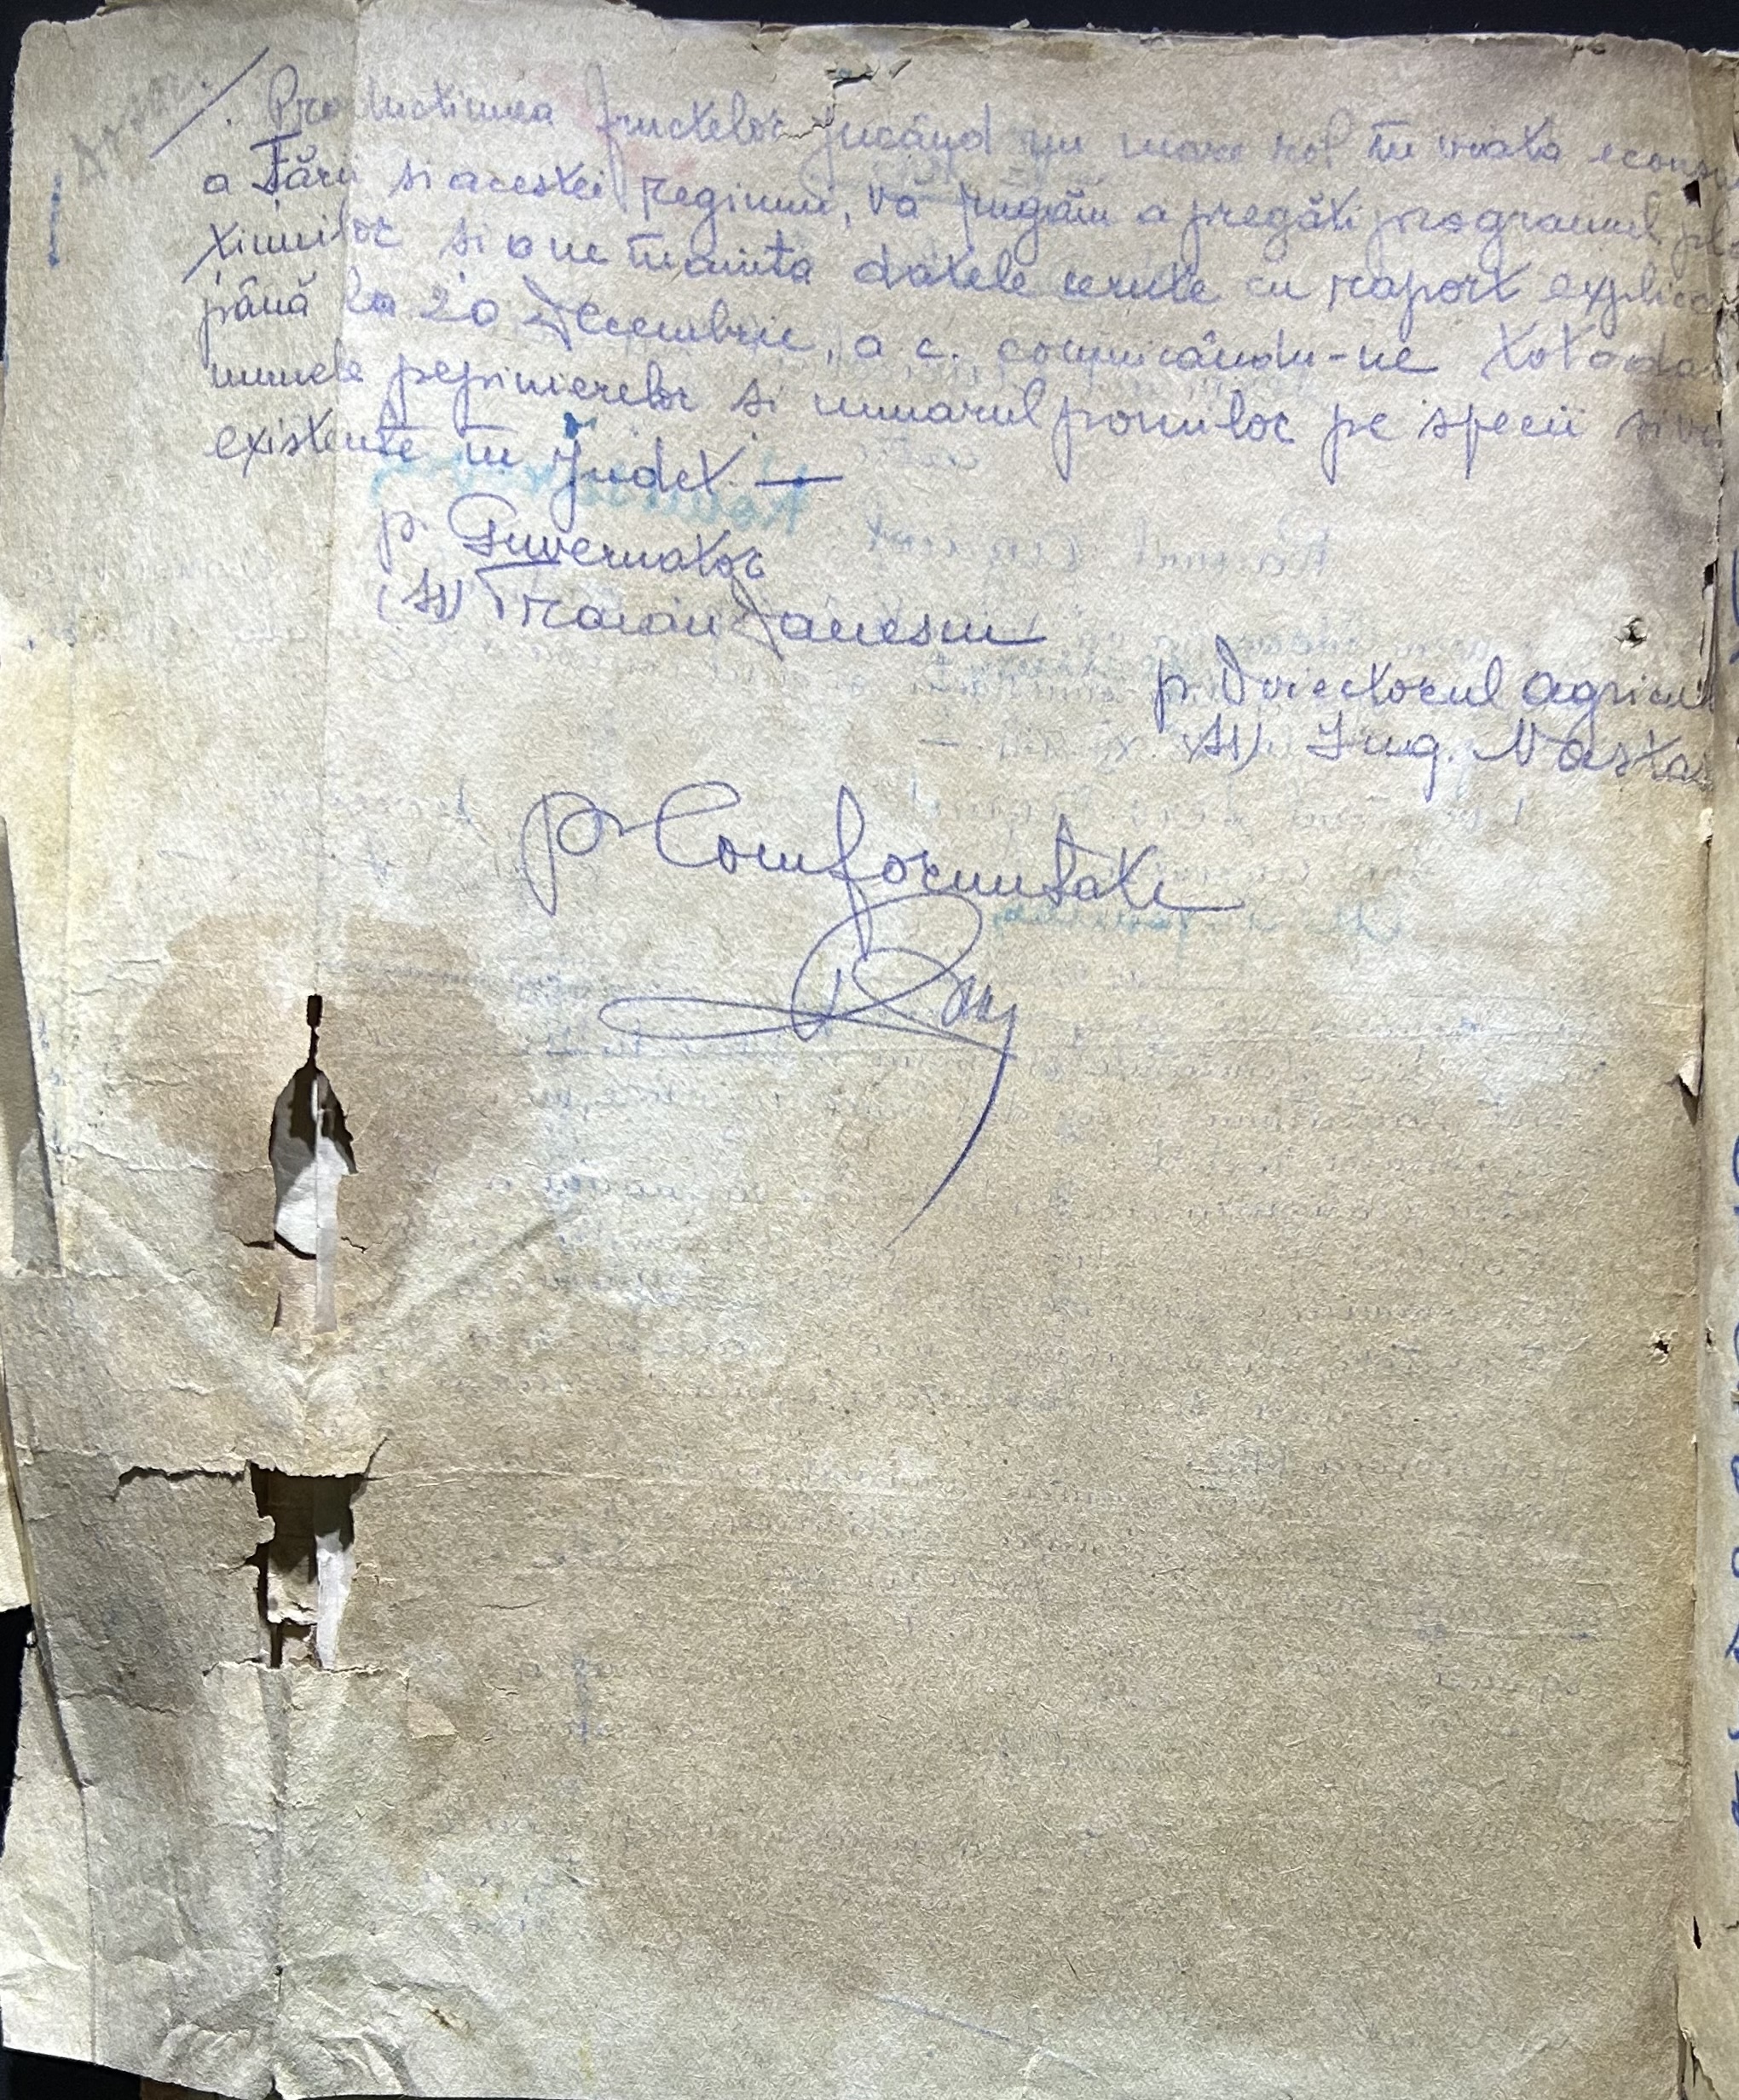 Productiunea fructelor jucând un mare rol în viata econo
a Tării si acestei regiuni, vă rugăm a pregăti programul pla
tiunilor si a ne înainta datele cerute cu raport explica
până la 20 Decembrie, a.c. comunicându-ne totoda
numele pepinierelor si numărul pomilor pe specii si
existente în judet. —
p. Guvernator
(ss) Traian
p. Directorul agricul
(ss) Ing. Nasta
p Comformitate